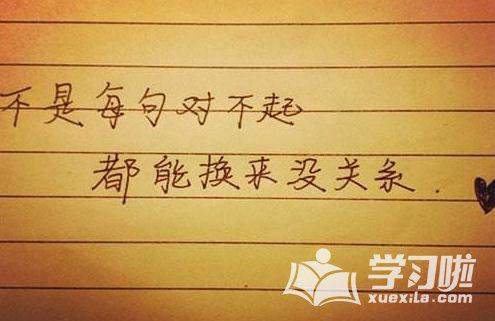 不是每句对不起
都能换来没关系.
学习啦
xuexila.com